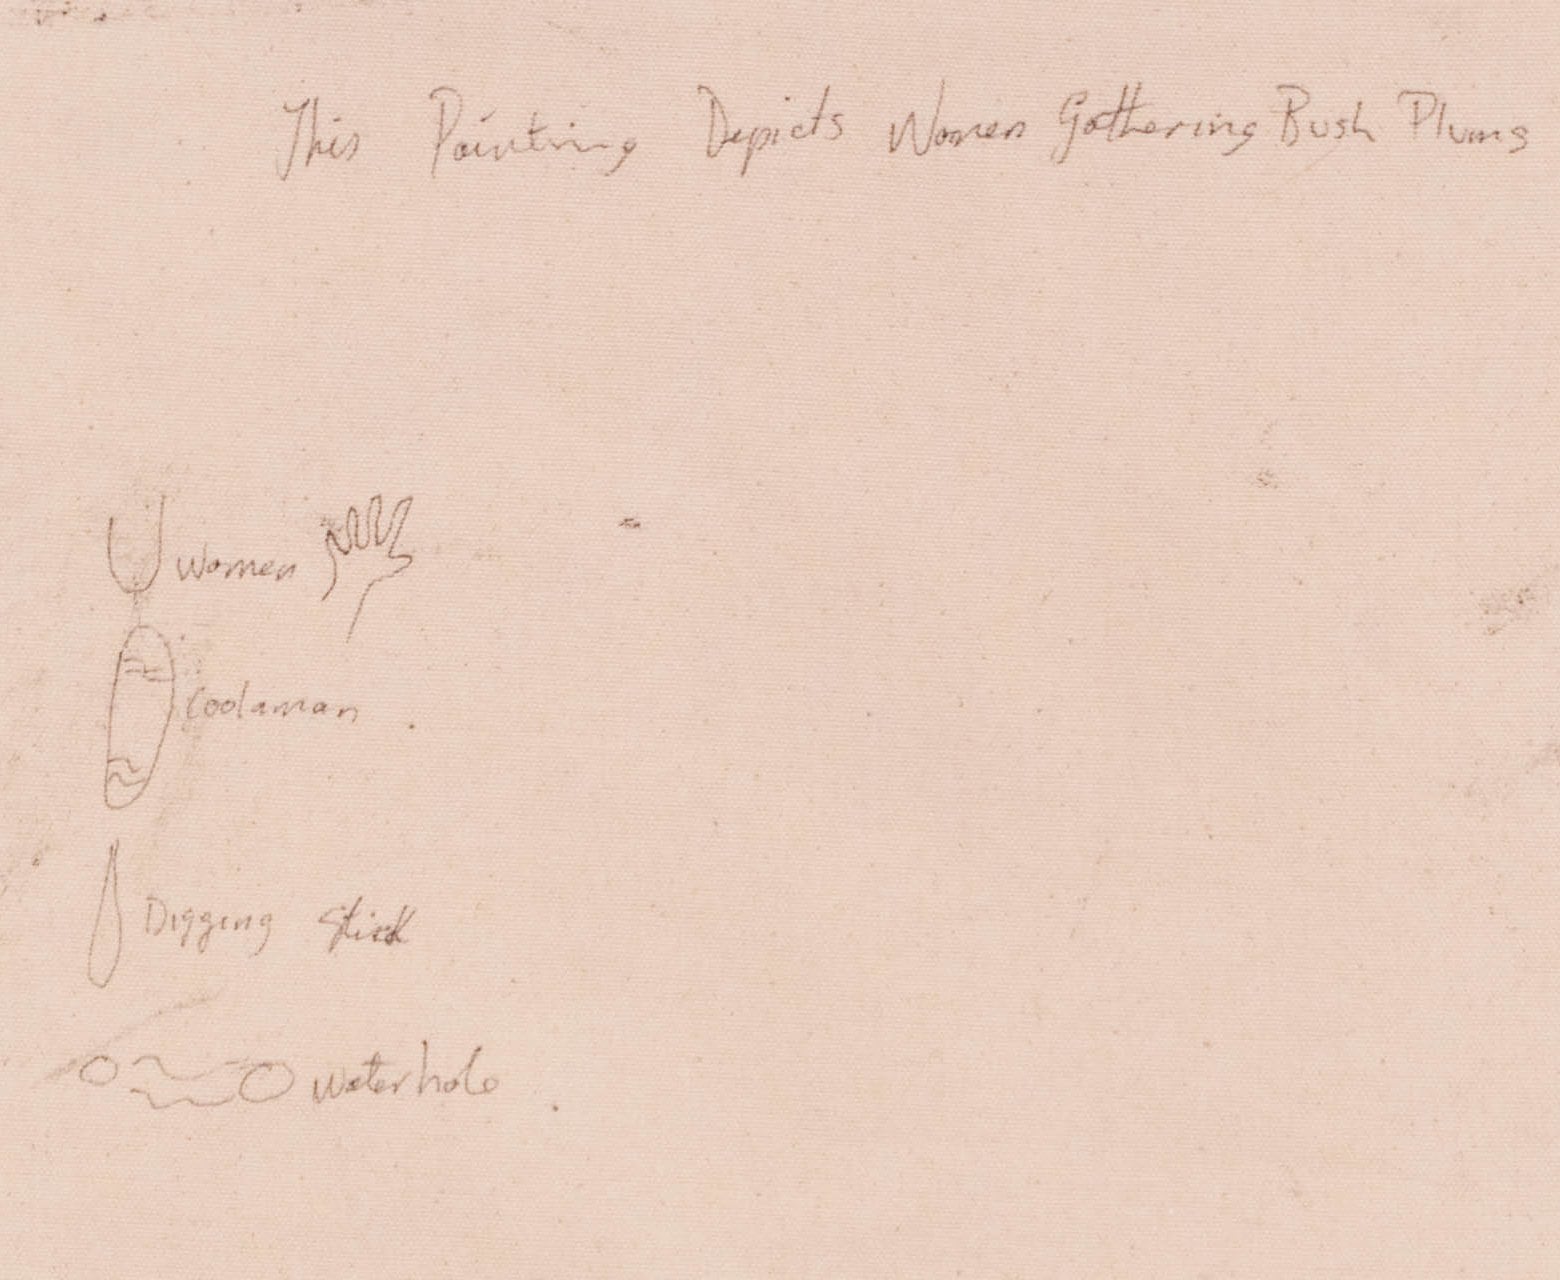 This Painting Depicts Women Gathering Bush Plums
Women
Coolaman
Digging Stick
Waterhole